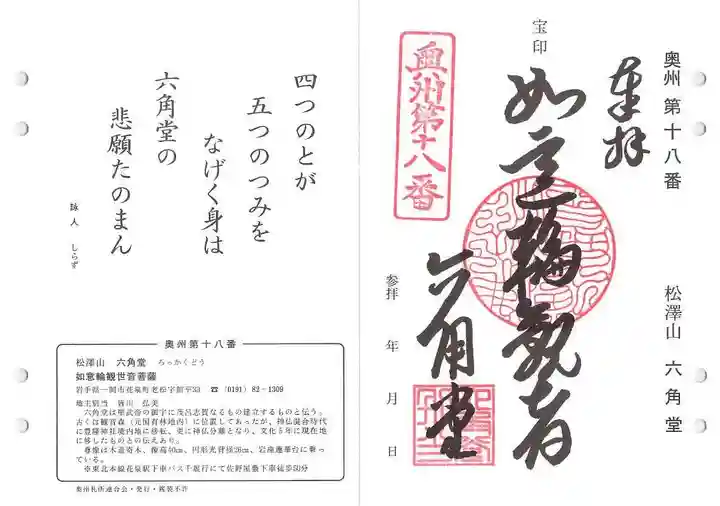 奥州 第十八番
松澤山 六角堂
奉拝
宝印
如意輪観音
六角堂
奥州第十八番
参拝 年 月 日
四つのとが
五つのつみを
なげく身は
六角堂の
悲願たのまん
詠人 しらず
奥州第十八番
松澤山 六角堂 ろっかくどう
如意輪観世音菩薩
岩手県一関市花泉町老松字館平33 ☎(0191)82-1309
堂主別当 皆川 弘美
六角堂は聖武帝の御宇に茂呂志賀なるもの建立するものと伝う。
古くは観音森(元国有林地内)に位置してあったが、神仏混合時代
に豊隆神社境内地に移転、更に神仏分離となり、文化5年に現在地
に移したものとの伝えあり。
尊像は木造寄木、像高40cm、円形光背径26cm、岩座蓮華台に乗っ
ている。
※東北本線花泉駅下車バス千厩行にて佐野屋敷下車徒歩50分
奥州札所連合会・発行・複製不許